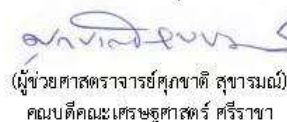 (ผู้ช่วยศาสตราจารย์ศุภชาติ สุขารมณ์)
คณบดีคณะเศรษฐศาสตร์ ศรีราชา